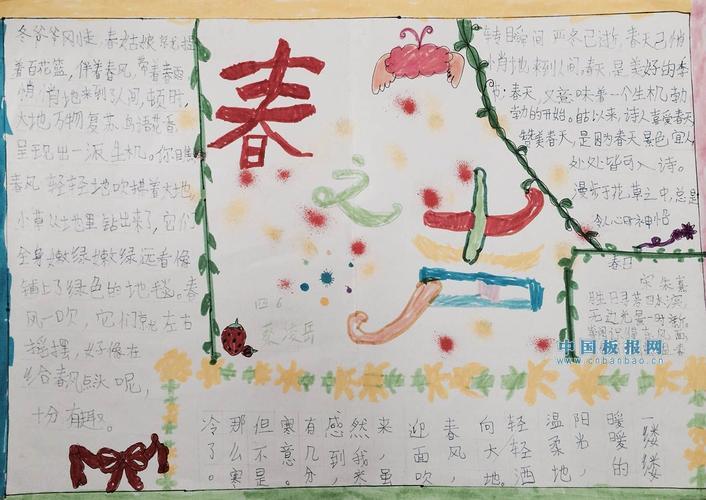 冬爷爷刚走，春姑娘就挎
着百花篮，伴着春风，带着春雨
悄悄地来到了人间，顿时，
大地万物复苏鸟语花香
呈现出一派生机。你瞧
春风轻轻地吹拂着大地，
小草从地里钻出来了，它们
全身嫩绿嫩绿远看像
铺上了绿色的地毯。春
风一吹，它们就左右
摇摆，好像在
给春风点头呢，
十分有趣。
春之声
四.6
转瞬间严冬已逝，春天已悄
悄地来到人间，春天是美好的季
节；春天，又意味着一个生机勃
勃的开始。自古以来，诗人喜爱春天
赞美春天，是因为春天景色宜人
处处皆可入诗。
漫步于花草之中，总是
令人心旷神怡
春日
宋 朱熹
胜日寻芳泗水滨，
无边光景一时新。
等闲识得东风面，
中国板报网
www.cnbanbao.cn
一缕缕
暖暖的
阳光，
温柔地
轻轻洒
向大地。
春风，
迎面吹
来，虽
然我来
感到，
有几分
寒意。
但不是
那么寒
冷了。